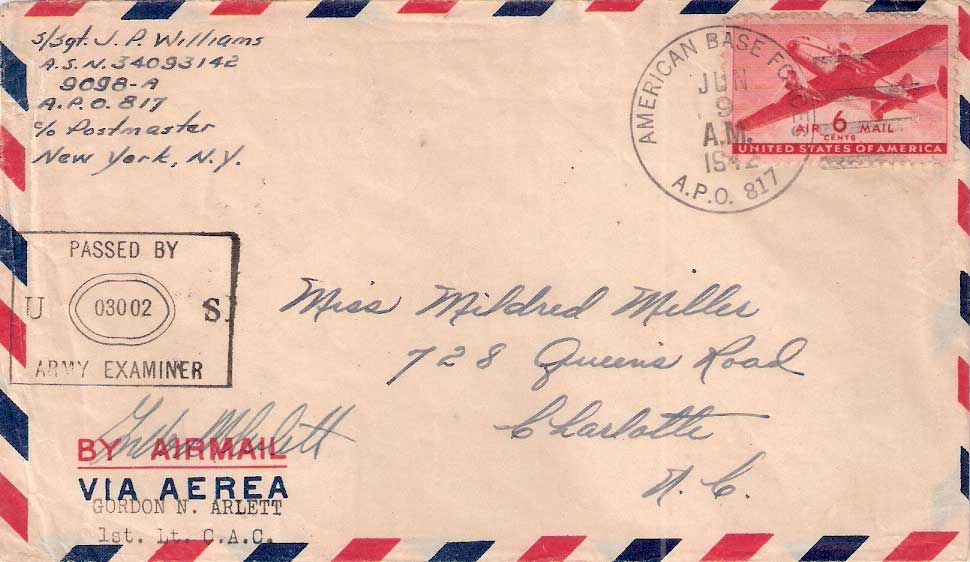 S/Sgt. J. P. Williams
A.S.N. 34093142
9098-A
A.P.O. 817
c/o Postmaster
New York, N.Y.
AMERICAN BASE FORCES
JUN
9
A.M.
1942
A.P.O. 817
AIR 6 MAIL
CENTS
UNITED STATES OF AMERICA
PASSED BY
U 03002 S
ARMY EXAMINER
Miss Mildred Miller
728 Queens Road
Charlotte
N.C.
BY AIRMAIL
VIA AEREA
GORDON N. ARLETT
1st. Lt. C.A.C.